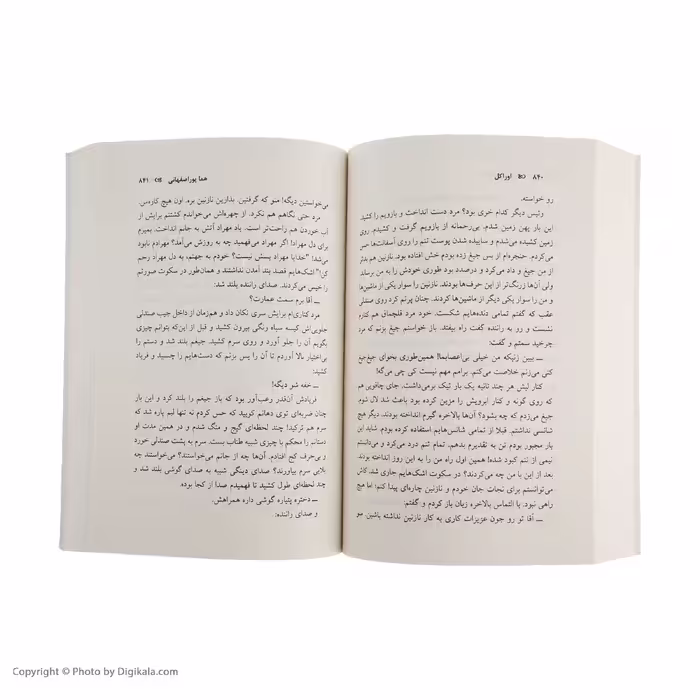 ۸۴۰ اوراکل
رو خواسته.
وئیس دیگر کدام خری بود؟ مرد دست انداخت و بازویم را کشید.
این بار پهن زمین شدم. بی‌رحمانه بازویم گرفت و کشیدم. روی
زمین کشیده می‌شدم و ساییده شدن پوست تنم را روی آسفالت‌ها حس
می‌کردم. حنجره‌ام از بس جیغ زده بودم خش افتاده بود. نازنین هم بدتر
از من جیغ و داد می‌کرد و درصدد بود طوری خودش را به من برساند
ولی آن‌ها زرنگ‌تر از این حرف‌ها بودند. نازنین را سوار یکی از ماشین‌ها
و من را سوار یکی دیگر از ماشین‌ها کردند. چنان پرتم کرد روی صندلی
عقب که گفتم تمامی دنده‌هایم شکست. خود مرد قلچماق هم کنارم
نشست و رو به راننده گفت راه بیفتد. باز خواستم جیغ بزنم که مرد
چرخید سمتم و گفت:
ــ ببین زنیکه من خیلی بی‌اعصابم! همین‌طوری بخوای جیغ‌جیغ
کنی می‌زنم خلاصت می‌کنم. برامم مهم نیست کی چی می‌گه!
کنار لبش هر چند ثانیه یک بار تیک برمی‌داشت. جای چاقویی هم
که روی گونه و کنار ابرویش را مزین کرده بود باعث شد لال شوم.
جیغ می‌زدم که چه بشود؟ آن‌ها بالاخره گیرم انداخته بودند. دیگر هیچ
شانسی نداشتم. قبلا از تمامی شانس‌هایم استفاده کرده بودم. شاید این
بار مجبور بودم تن به تقدیرم بدهم. تمام تنم درد می‌کرد و می‌دانستم
نیمی از تنم کبود شده! همین اول راه من را به این روز انداخته بودند.
بعد از این با من چه می‌کردند؟ در سکوت اشک‌هایم جاری شد. کاش
می‌توانستم برای نجات جان خودم و نازنین چاره‌ای پیدا کنم؛ اما هیچ
راهی نبود. با التماس بالاخره زبان باز کردم و گفتم:
ــ آقا تو رو جون عزیزات کاری به کار نازنین نداشته باشین. مو
هما پوراصفهانی ۸۴۱
می‌خواستین دیگه! منو که گرفتین. بذارین نازنین بره. اون هیچ کاره‌س.
مرد حتی نگاهم هم نکرد. از چهره‌اش می‌خواندم کشتنم برایش از
آب خوردن هم راحت‌تر است. یاد مهراد آتش به جانم انداخت. بمیرم
برای دل مهراد! اگر مهراد می‌فهمید چه به روزش می‌آمد؟ مهرادم نابود
می‌شد! "خدایا مهراد پسش نیست؟ خودم به جهنم، به دل مهراد رحم
کن!" اشک‌هایم قصد بند آمدن نداشتند و همان‌طور در سکوت صورتم
را خیس می‌کردند. صدای راننده بلند شد:
ــ آقا برم سمت عمارت؟
مرد کناری‌ام برایش سری تکان داد و هم‌زمان از داخل جیب صندلی
جلویی‌اش کیسه سیاه رنگی بیرون کشید و قبل از این‌که بتوانم چیزی
بگویم آن را جلو آورد و روی سرم کشید. جیغم بلند شد و دستم را
بی‌اختیار بالا آوردم تا آن را پس بزنم که دست‌هایم را چسبید و فریاد
کشید:
ــ خفه شو دیگه!
فریادش آن‌قدر رعب‌آور بود که باز جیغم را بلند کرد و این بار
چنان ضربه‌ای توی دهانم کوبید که حس کردم نه تنها لبم پاره شد که
سرم هم ترکید! چند لحظه‌ای گیج و منگ شدم و در همین مدت او
دستانم را محکم با چیزی شبیه طناب بست. سرم به پشت صندلی خورد
و بی‌حرف کج افتادم. آن‌ها چه از جانم می‌خواستند؟ می‌خواستند چه
بلایی سرم بیاورند؟ صدای دینگی شبیه به صدای گوشی بلند شد و
چند لحظه‌ای طول کشید تا فهمیدم صدا از کجا بوده.
ــ دختره پتیاره گوشی داره همراهش.
و صدای راننده:
Copyright © Photo by Digikala.com